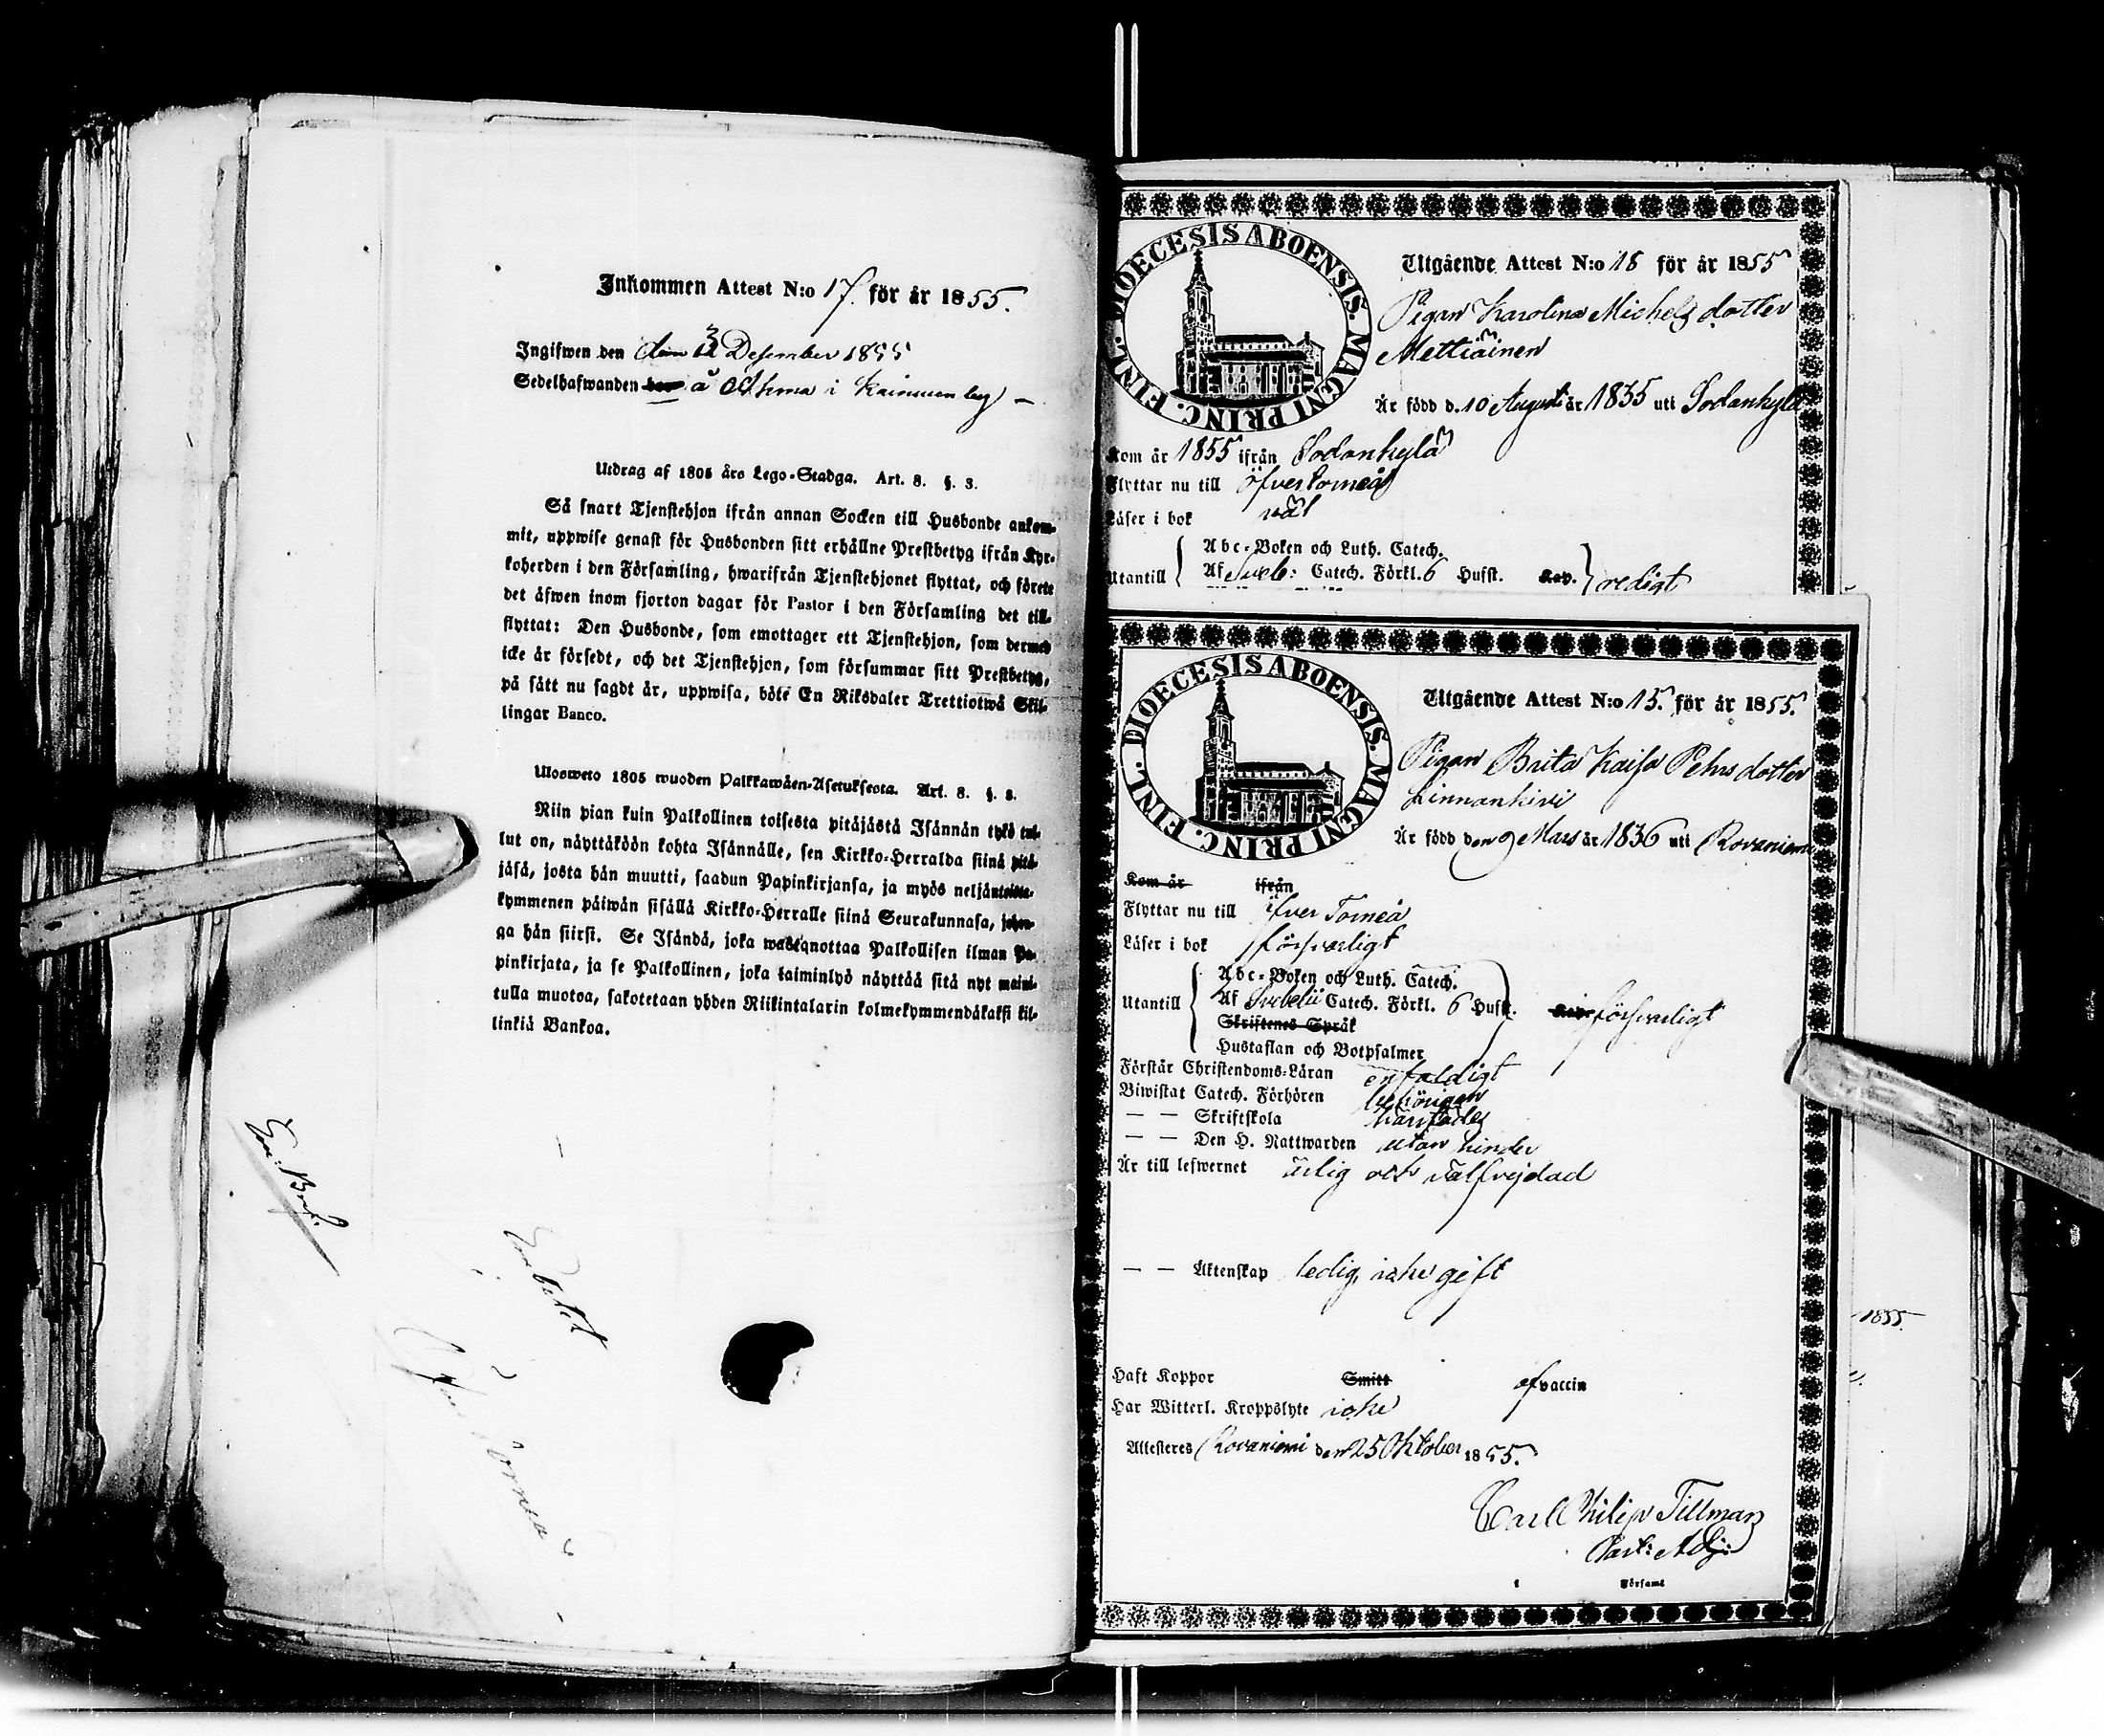 Inkommen Attest N:o 17. för år 1855.
Ingifwen den 3 Desember 1855
Sedelhafwanden å i Kainuunby
Utdrag af 1805 års Lego-Stadga. Art. 8. §. 3.
Så snart Tjenstehjon ifrån annan Socken till Husbonde ankom-
mit, uppwise genast för Husbonden sitt erhållne Prestbetyg ifrån Kyr-
koherden i den Församling, hwarifrån Tjenstehjonet flyttat, och förete
det äfwen inom fjorton dagar för Pastor i den Församling det till-
flyttat: Den Husbonde, som emottager ett Tjenstehjon, som dermed
icke är försedt, och det Tjenstehjon, som försummar sitt Prestbetyg,
på sätt nu sagdt är, uppwisa, böte En Riksdaler Trettiotwå Skil-
lingar Banco.
Ulosweto 1805 wuoden Palkkawäen-Asetuksesta. Art. 8. §. 3.
Niin pian kuin Palkollinen toisesta pitäjästä Isännän tykö tul-
lut on, näyttäköön kohta Isännälle, sen Kirkko-Herralda siinä pitä-
jäsä, josta hän muutti, saadun Papinkirjansa, ja myös neljäntoista-
kymmenen päiwän sisällä Kirkko-Herralle siinä Seurakunnasa, johon-
ga hän siirsi. Se Isändä, joka wastanottaa Palkollisen ilman Pa-
pinkirjata, ja se Palkollinen, joka laiminlyö näyttää sitä nyt maini-
tulla muotoa, sakotetaan yhden Riikintalarin kolmekymmendäkaksi kil-
linkiä Bankoa.
DIOECESIS ABOENSIS. MAGNI PRINC. FINL.
Utgående Attest N:o 18 för år 1855
Pigan Karolina Michels dotter
Mettiäinen
Är född d. 10 Augusti år 1835 uti Sodankylä
Kom år 1855 ifrån Sodankylä
Flyttar nu till Öfvertorneå
Läser i bok väl
Utantill
Abc-Boken och Luth. Catech.
Af Sveb: Catech. Förkl. 6 Hufst. Kap. redigt
DIOECESIS ABOENSIS. MAGNI PRINC. FINL.
Utgående Attest N:o 15. för år 1855.
Pigan Brita Kaisa Pehrs dotter
Linnankivi
Är född den 9 Mars år 1836 uti Rovaniemi
Kom år ifrån
Flyttar nu till Öfver Torneå
Läser i bok försvarligt
Utantill
Abc-Boken och Luth. Catech.
Af Svebelii Catech. Förkl. 6 Hufst. Kap. försvarligt
Skriftenes Språk
Hustaflan och Botpsalmer
Förstår Christendoms-Läran enfaldigt
Biwistat Catech. Förhören behörigen
— — Skriftskola
— — Den H. Nattwarden utan hinder
Är till lefwernet ärlig och välfrejdad
— — Äktenskap ledig, icke gift
Haft Koppor Smitt af vaccin
Har Witterl. Kroppslyte icke
Attesteres Rovaniemi den 25 Oktober 1855.
Carl Philip Tillman
Past: Adj:
Församl
1855.